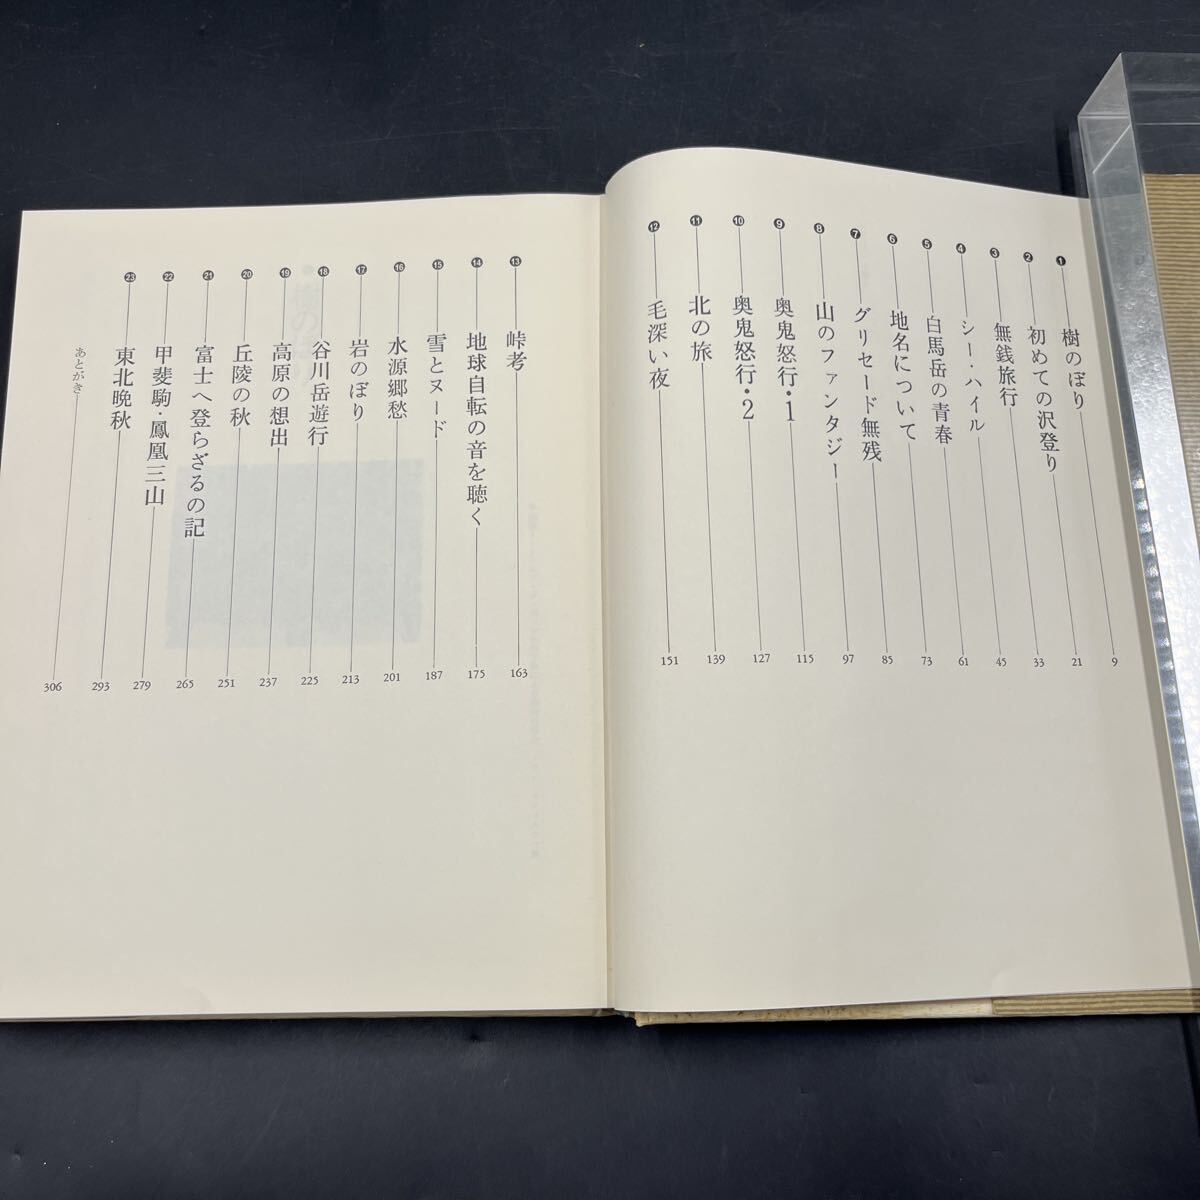 ❶ 樹のぼり 9
❷ 初めての沢登り 21
❸ 無銭旅行 33
❹ シー・ハイル 45
❺ 白馬岳の青春 61
❻ 地名について 73
❼ グリセード無残 85
❽ 山のファンタジー 97
❾ 奥鬼怒行・1 115
❿ 奥鬼怒行・2 127
⓫ 北の旅 139
⓬ 毛深い夜 151
⓭ 峠考 163
⓮ 地球自転の音を聴く 175
⓯ 雪とヌード 187
⓰ 水源郷愁 201
⓱ 岩のぼり 213
⓲ 谷川岳遊行 225
⓳ 高原の想出 237
⓴ 丘陵の秋 251
㉑ 富士へ登らざるの記 265
㉒ 甲斐駒・鳳凰三山 279
㉓ 東北晩秋 293
あとがき 306